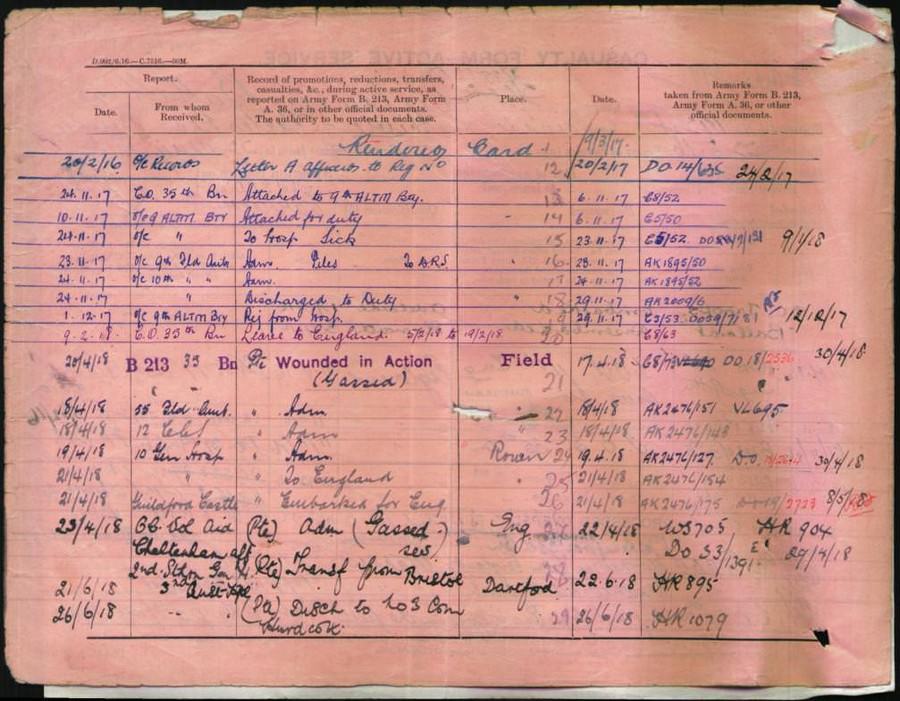 D.992/6.16.—C.7216.—50M.
Report.
Date.
From whom Received.
Record of promotions, reductions, transfers, casualties, &c., during active service, as reported on Army Form B. 213, Army Form A. 36, or in other official documents. The authority to be quoted in each case.
Place.
Date.
Remarks taken from Army Form B. 213, Army Form A. 36, or other official documents.
Card 9/3/17
20/2/16 O/c Records Letter A to Reg No 12 20/2/17 DO 14/ 24/2/17
24.11.17 C.O. 35th Bn Attached to 9th ALTM Bty. 13 6.11.17 C8/52
10.11.17 O/c 9 ALTM Bty Attached for duty 14 6.11.17 C5/50
24.11.17 O/c " To Hosp Sick 15 23.11.17 C5/52 9/1/18
23.11.17 O/c 9th Fld Amb Adm. Piles To D.R.S. 16 23.11.17 AK1895/50
24.11.17 O/c 10th " " Adm. 17 24.11.17 AK1895/52
24.11.17 " Discharged to Duty " 18 29.11.17 AK2009/6
1.12.17 O/c 9th ALTM Bty Rej from Hosp. 29.11.17 C3/53 12/12/17
9.2.18 C.O. 35th Bn Leave to England. 5/2/18 to 19/2/18 20 C8/63
20/4/18 B 213 35 Bn Pte Wounded in Action Field 17.4.18 C8/73 DO 18/2536 30/4/18
(Gassed) 21
18/4/18 Fld Amb. " Adm. " 22 18/4/18 AK2476/151
18/4/18 12 " Adm " 23 18/4/18 AK2476/143
19/4/18 10 Gen Hosp " Adm. Rouen 24 19.4.18 AK2476/127 D.O. 30/4/18
21/4/18 " " To England 25 21/4/18 AK2476/154
21/4/18 Guildford Castle " Embarked for Eng 26 21/4/18 AK2476/175 /2723 8/5/18
23/4/18 Aid (Pte) Adm (Gassed) Eng 27 22/4/18 W3705 HR 904
Cheltenham sev DO 33/1391 29/4/18
2nd Sthn Gen H. (Pte) Transf from Bristol 28
21/6/18 3rd Aux Hosp Dartford 22.6.18 HR 895
26/6/18 " (Pte) Disch to No 3 Com 29 26/6/18 HR 1079
Hurdcott.